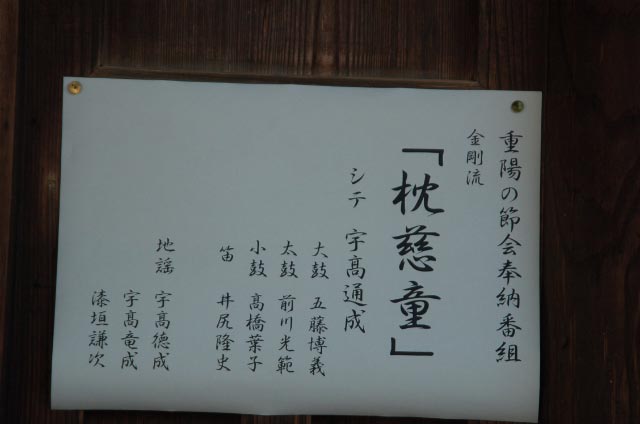 重陽の節会奉納番組
金剛流
「枕慈童」
シテ 宇髙通成
大鼓 五藤博義
太鼓 前川光範
小鼓 髙橋葉子
笛 井尻隆史
地謡 宇髙德成
宇髙竜成
漆垣謙次